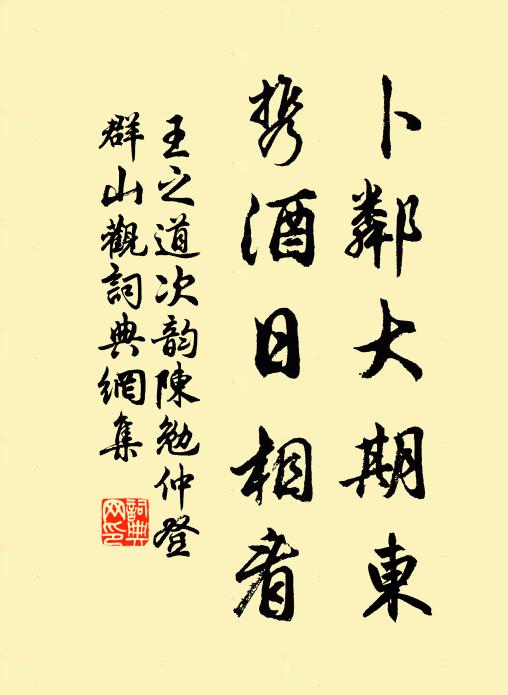 卜鄰大期東
携酒日相看
王之道次韵陳勉仲登
群山觀詞典網集
詞典網印